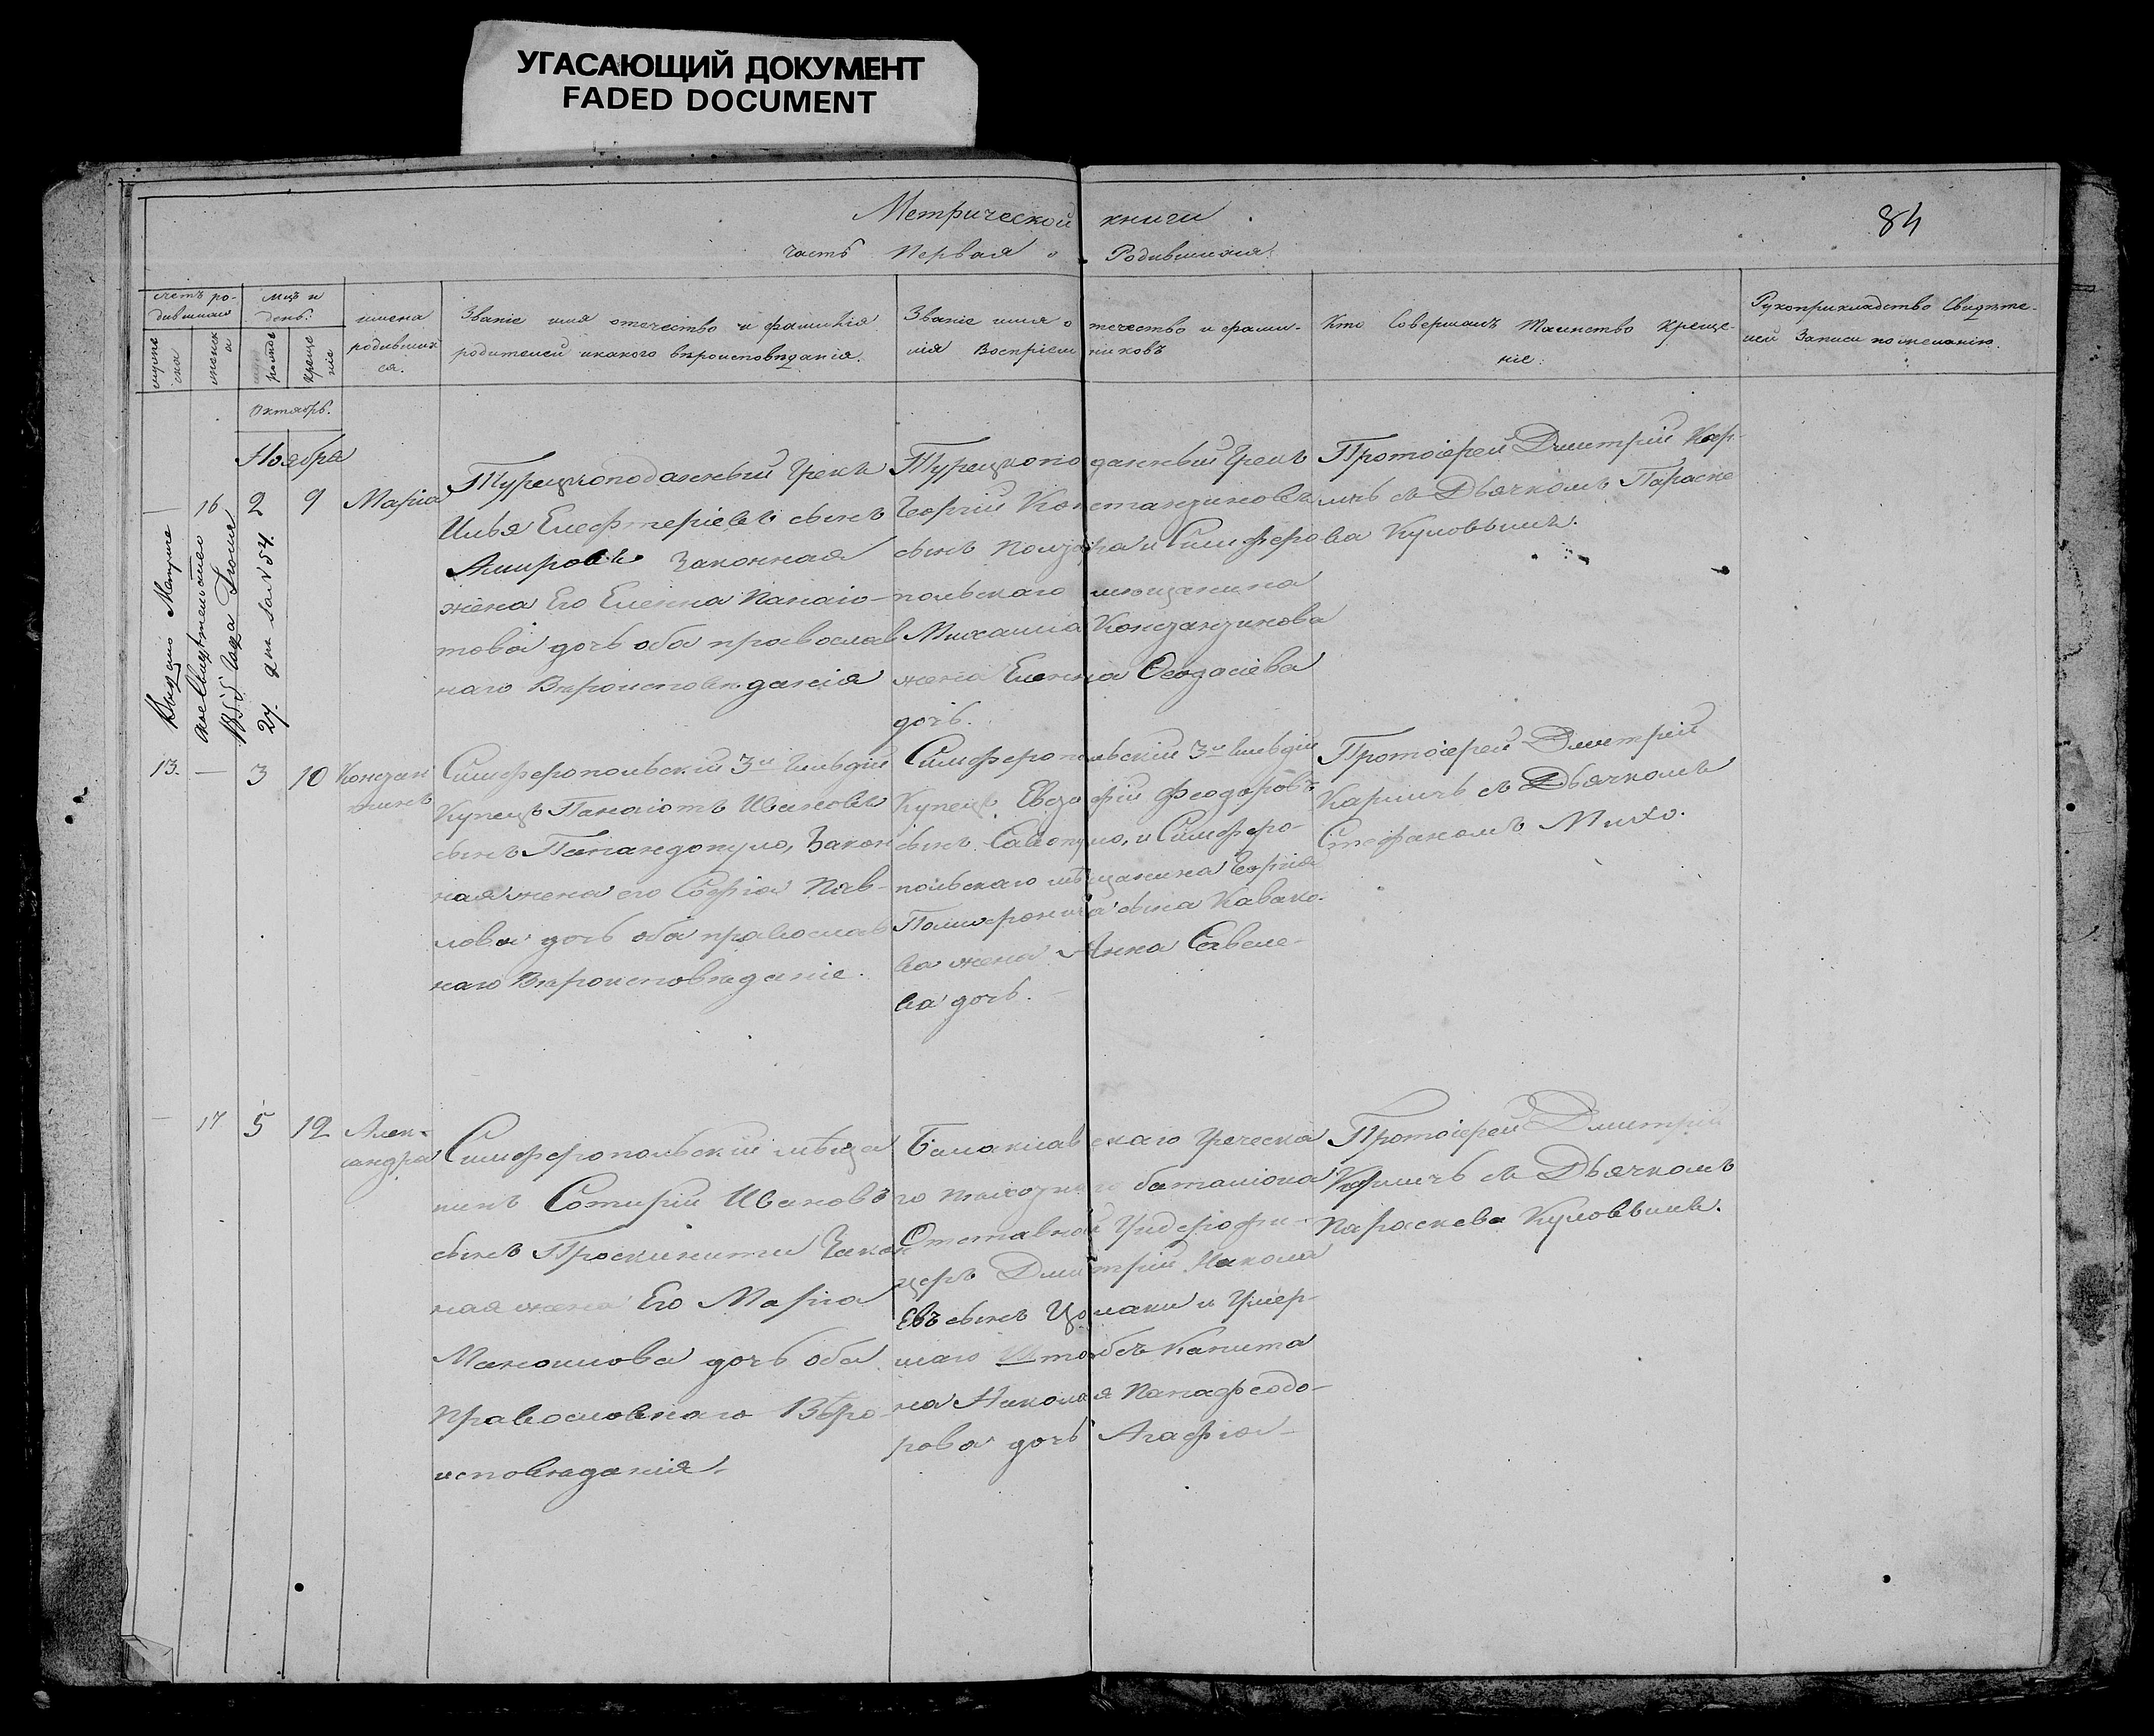 УГАСАЮЩИЙ ДОКУМЕНТ
FADED DOCUMENT
Метрической книги
84
часть Первая о Родившихся.
счетъ ро-
дившихся
мужеска
женска
мцъ и
день.
рожде
креще
ніе
имена
родивших
ся.
Званіе имя отечество и фамилія
родителей и какого вѣроисповѣданія.
Званіе имя отечество и фами-
лія Воспріемниковъ
Кто Совершалъ Таинство Креще-
ніе.
Рукоприкладство Свидѣте-
лей Записи по желанію.
Октябрь.
Ноября
— 16 2 9 Марія
Турецкоподанный Грекъ
Илья Елефтеріевъ сынъ
законная
жена Его Еленна Панаіо-
това дочь оба православ
наго Вѣроисповѣданія
Турецкоподанный Грекъ
Георгій Константиновъ
сынъ и Симферо
польскаго мещанина
Михаила Константинова
жена Еленна Феодосіева
дочь.
Протоіерей Дмитрій Кар-
ичъ съ Дьячкомъ Параске
ва Куловымъ.
2 дня за № 54.
13. — 3 10 Констан
тинъ
Симферопольскій 3й Гильдіи
Купецъ Панаіотъ Ивановъ
сынъ Папандопуло, Закон
ная жена его Софія Пав-
лова дочь оба православ
наго Вѣроисповѣданіе.
Симферопольскій 3й Гильдіи
Купецъ Феодоровъ
сынъ и Симферо-
польскаго мѣщанина Георгія
сына Кавако-
ва жена Анна Савеле-
ва дочь.
Протоіерей Дмитрій
съ Дьячкомъ
Стефаномъ Михо.
— 17 5 12 Алек-
сандра
Симферопольскій мѣща
нинъ Сотирій Ивановъ
сынъ Проскинити Закон
ная жена Его Марія
Манойлова дочь оба
православнаго Вѣро-
исповѣданія.
Балаклавскаго Греческа
го пѣхотнаго баталіона
Отставной Ундерофи-
церъ Дмитрій Никола
евъ сынъ и Умер-
шаго Штабсъ Капита
на Николая Папафеодо-
рова дочь Агафія
Протоіерей Дмитрій
съ Дьячкомъ
Параскева Куловымъ.